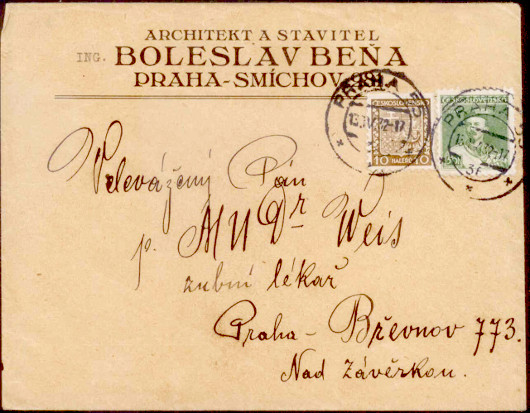 ARCHITEKT A STAVITEL
ING. BOLESLAV BEŇA
PRAHA-SMÍCHOV
PRAHA
13.IV.32-17
ČESKOSLOVENSKO
10 HALÉŘŮ 10
ČESKOSLOVENSKO
50
PRAHA
3f
Velevážený Pán
p. MUDr Weis
zubní lékař
Praha - Břevnov 773.
Nad Závěrkou.